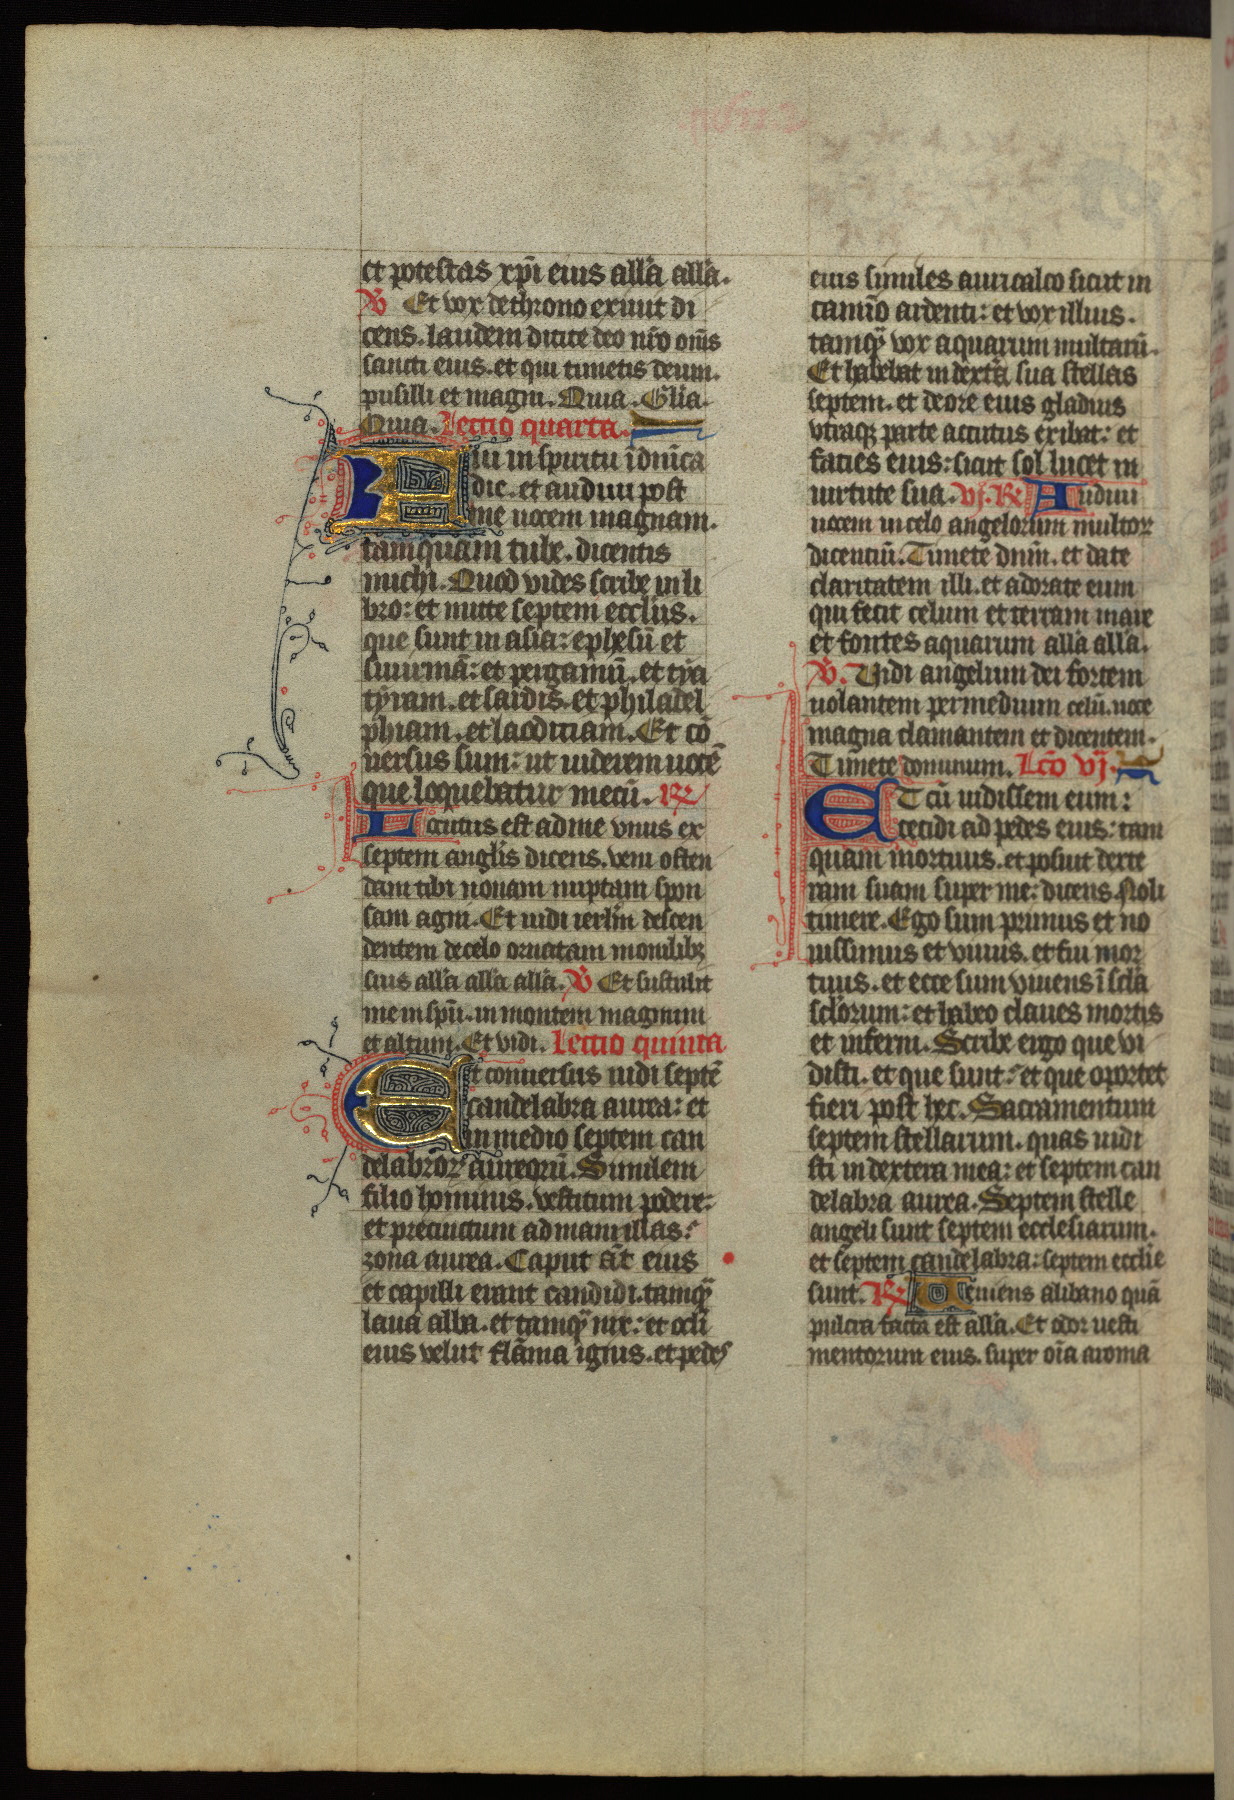 et potestas xp̄i eius all'a all'a.
V̄ Et vox de throno exiuit di
cens. laudem dicite deo nr̄o om̄s
sancti eius. et qui timetis deum.
pusilli et magni. Quia. Gl'ia.
Quia. Lectio quarta.
Fui in spiritu ī dn̄ica
die. et audiui post
me uocem magnam.
tamquam tube. dicentis
michi. Quod vides scribe in li
bro: et mitte septem eccl'iis.
que sunt in asia: ephesū et
smirmā: et pergamū. et tya
tyram. et sardis. et philadel
phiam. et laodiciam. Et cō
uersus sum: ut uiderem uocē
que loquebatur mecū. R̄
Locutus est ad me vnus ex
septem angl'is dicens. veni osten
dam tibi nouam nuptam spon
sam agni. Et uidi ierl'm descen
dentem de celo ornatam monilibꝫ
suis all'a all'a all'a. V̄ Et sustulit
me in sp̄u. in montem magnum
et altum. Et vidi. Lectio quinta
Et conuersus uidi septē
candelabra aurea: et
in medio septem can
delabroꝝ aureorū. Similem
filio hominis. vestitum podere:
et precinctum ad mamillas:
zona aurea. Caput aūt eius
et capilli erant candidi. tamqꝫ
lana alba. et tamqꝫ nix: et ocl'i
eius velut flāma ignis. et pedes
eius similes auricalco sicut in
camīo ardenti: et vox illius.
tamqꝫ vox aquarum multarū.
Et habebat in dext'a sua stellas
septem. et de ore eius gladius
vtraqꝫ parte accutus exibat: et
facies eius: sicut sol lucet in
uirtute sua. vj. R̄ Audiui
uocem in celo angelorum multoꝝ
dicenciū. Timete dn̄m. et date
claritatem illi. et adorate eum
qui fecit celum et terram mare
et fontes aquarum all'a all'a.
V̄. Vidi angelum dei fortem
uolantem per medium celū. uoce
magna clamantem et dicentem.
Timete dominum. Lc̄o vj.
ET cū uidissem eum:
cecidi ad pedes eius: tam
quam mortuus. et posuit dexte
ram suam super me: dicens. Noli
timere. Ego sum primus et no
uissimus et viuus. et fui mor
tuus. et ecce sum viuens ī scl'a
scl'orum: et habeo claues mortis
et inferni. Scribe ergo que vi
disti. et que sunt: et que oportet
fieri post hec. Sacramentum
septem stellarum. quas uidi
sti in dextera mea: et septem can
delabra aurea. Septem stelle
angeli sunt septem ecclesiarum.
et septem candelabra: septem eccl'ie
sunt. R̄ Deniens a libano quā
pulcra facta est all'a. Et odor uesti
mentorum eius. super oīa aroma